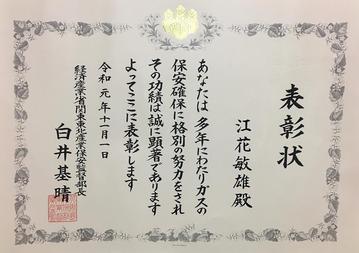 表彰状
江花敏雄殿
あなたは多年にわたりガスの
保安確保に格別の努力をされ
その功績は誠に顕著であります
よってここに表彰します
令和元年十一月一日
経済産業省関東東北産業保安監督部長
白井基晴